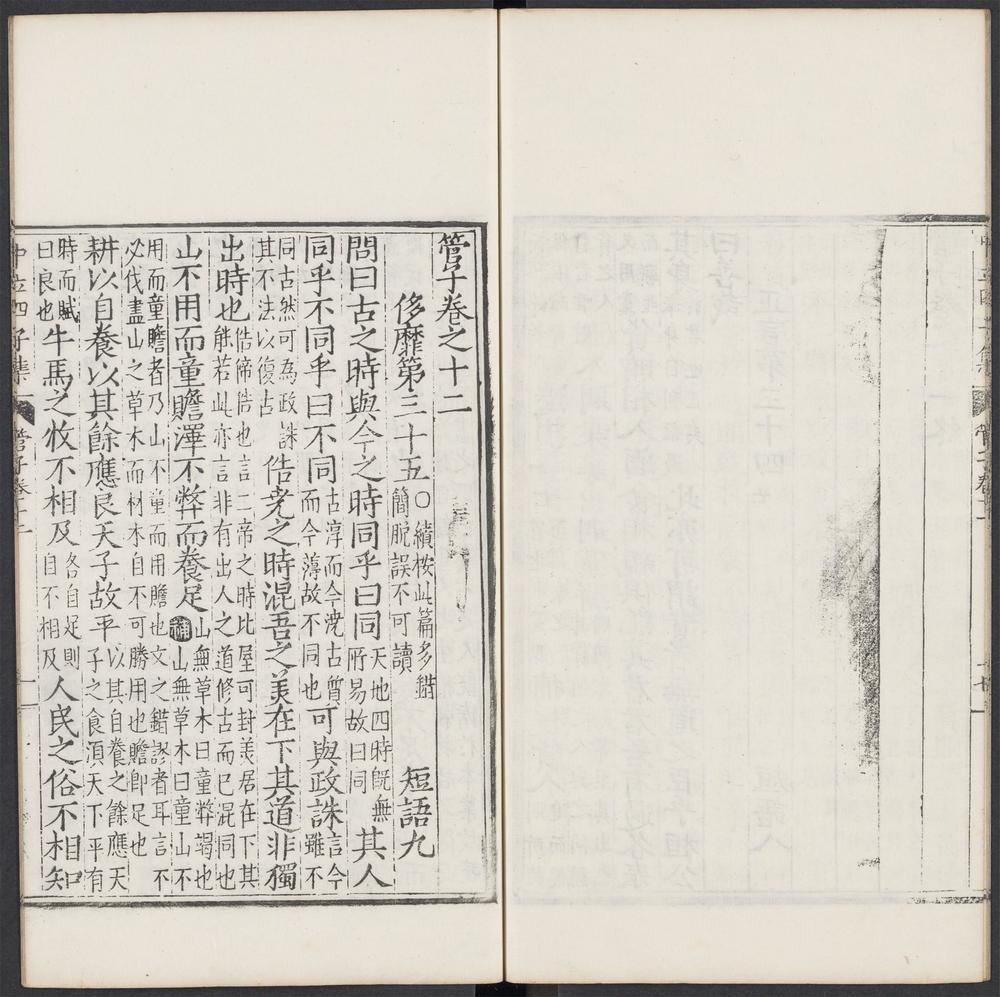 管子卷十一
管子卷之十二
侈靡第三十五 ○續按此篇多錯簡脫誤不可讀 短語九
問曰古之時與今之時同乎曰同天地四時既無所易故曰同其人
同乎不同乎曰不同古淳而今澆古質而今薄故不同也可與政誅言今雖不
同古然可為政誅其不法以復古俈尭之時混吾之美在下其道非獨
出時也俈帝俈也言二帝之時比屋可封美居在下其能若此亦言非有出人之道修古而已混同也
山不用而童贍澤不弊而養足山無草木曰童弊竭也補山無草木曰童山不
用而童贍者乃山不童而用贍也文之錯謬者耳言不必伐盡山之草木而材木自不可勝用也贍即足也
耕以自養以其餘應良天子故平以其自養之餘應天子之食湏天下平有
時而賦曰良也牛馬之牧不相及各自足則自不相及人民之俗不相知
中立四子集 管子卷十二 一